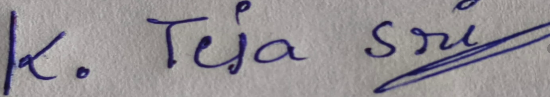 K. Teja Sri